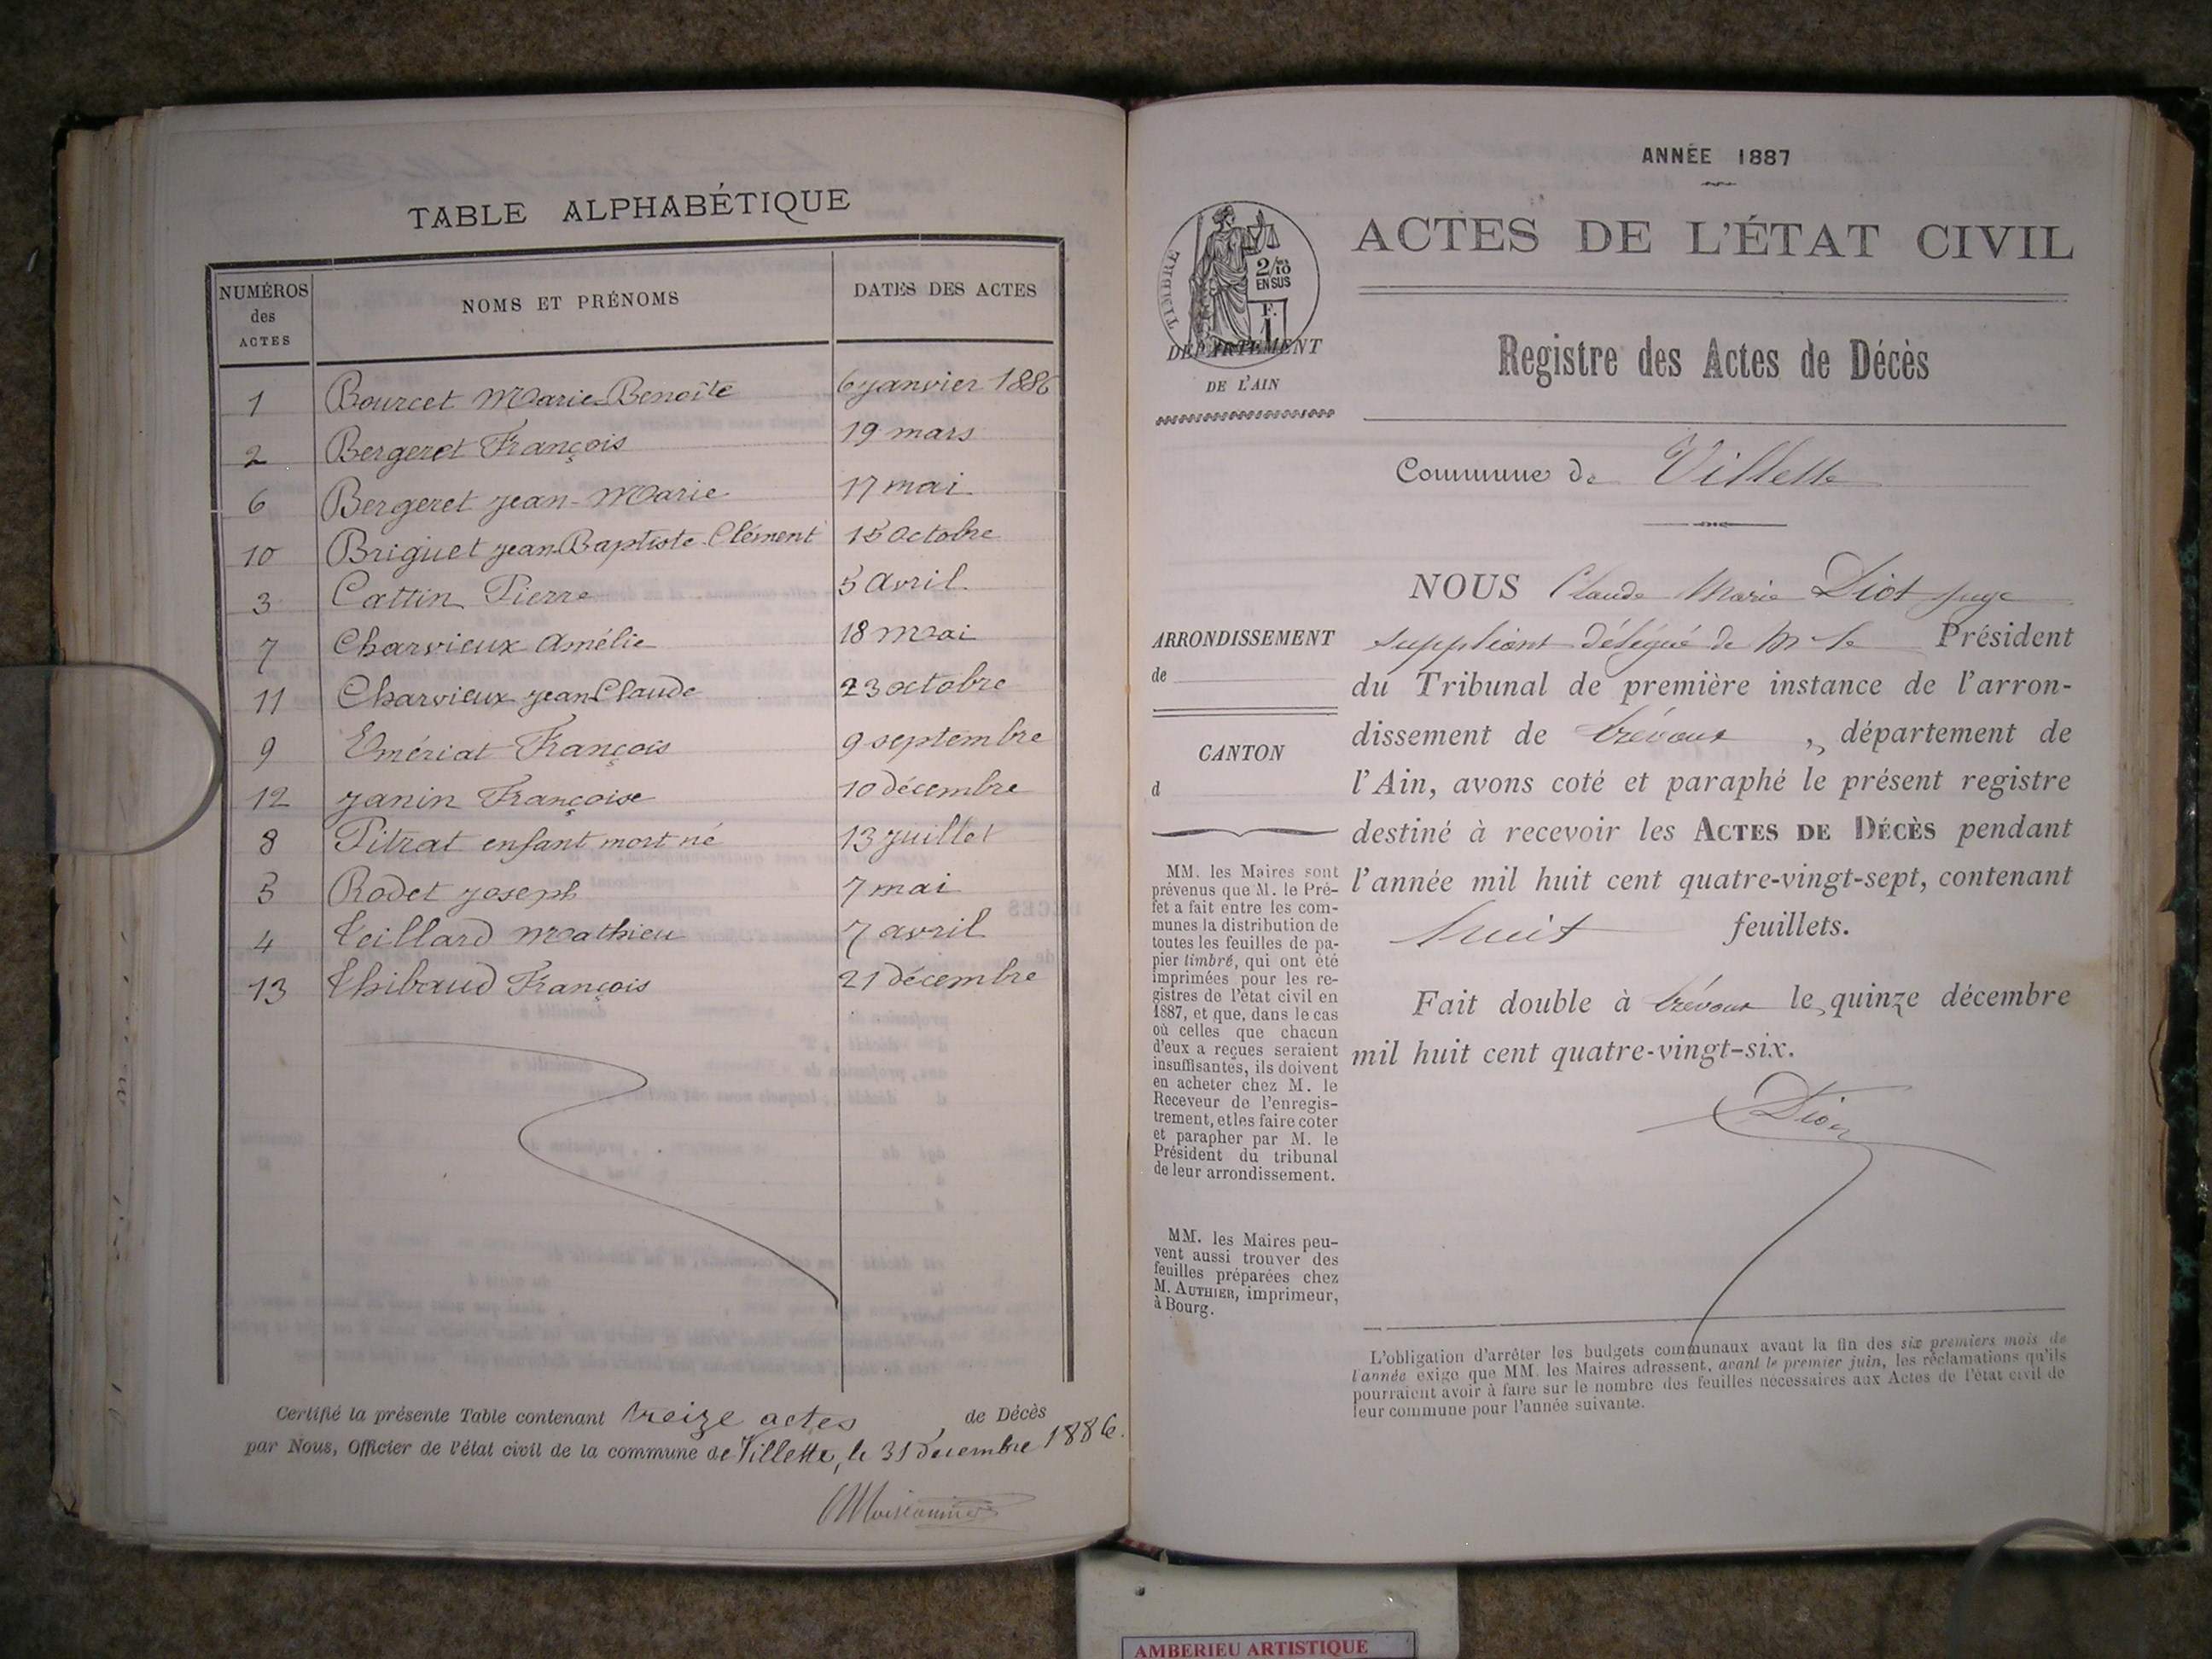 TABLE ALPHABÉTIQUE
NUMÉROS
des
ACTES
NOMS ET PRÉNOMS
DATES DES ACTES
1 Bourcet Marie-Benoîte 6 janvier 1886
2 Bergeret François 19 mars
6 Bergeret Jean-Marie 17 mai
10 Briguet Jean Baptiste Clément 15 octobre
3 Cattin Pierre 5 avril
7 Charvieux Amélie 18 mai
11 Charvieux Jean Claude 23 octobre
9 Emériat François 9 septembre
12 Janin Françoise 10 décembre
8 Pitrat enfant mort né 13 juillet
5 Rodet Joseph 7 mai
4 Teillard Mathieu 7 avril
13 Thibaud François 21 décembre
Certifié la présente Table contenant treize actes de Décès
par Nous, Officier de l'état civil de la commune de Villette, le 31 décembre 1886.
ANNÉE 1887
TIMBRE
2/10
EN SUS
F.
1
DÉPARTEMENT
DE L'AIN
ACTES DE L'ÉTAT CIVIL
Registre des Actes de Décès
Commune de Villette
ARRONDISSEMENT
de
CANTON
d
NOUS Claude Marie Diot juge
suppléant délégué de Mr le Président
du Tribunal de première instance de l'arron-
dissement de Trévoux, département de
l'Ain, avons coté et paraphé le présent registre
destiné à recevoir les ACTES DE DÉCÈS pendant
l'année mil huit cent quatre-vingt-sept, contenant
huit feuillets.
Fait double à Trévoux le quinze décembre
mil huit cent quatre-vingt-six.
Diot
MM. les Maires sont
prévenus que M. le Pré-
fet a fait entre les com-
munes la distribution de
toutes les feuilles de pa-
pier timbré, qui ont été
imprimées pour les re-
gistres de l'état civil en
1887, et que, dans le cas
où celles que chacun
d'eux a reçues seraient
insuffisantes, ils doivent
en acheter chez M. le
Receveur de l'enregis-
trement, et les faire coter
et parapher par M. le
Président du tribunal
de leur arrondissement.
MM. les Maires peu-
vent aussi trouver des
feuilles préparées chez
M. AUTHIER, imprimeur,
à Bourg.
L'obligation d'arrêter les budgets communaux avant la fin des six premiers mois de
l'année exige que MM. les Maires adressent, avant le premier juin, les réclamations qu'ils
pourraient avoir à faire sur le nombre des feuilles nécessaires aux Actes de l'état civil de
leur commune pour l'année suivante.
AMBERIEU ARTISTIQUE